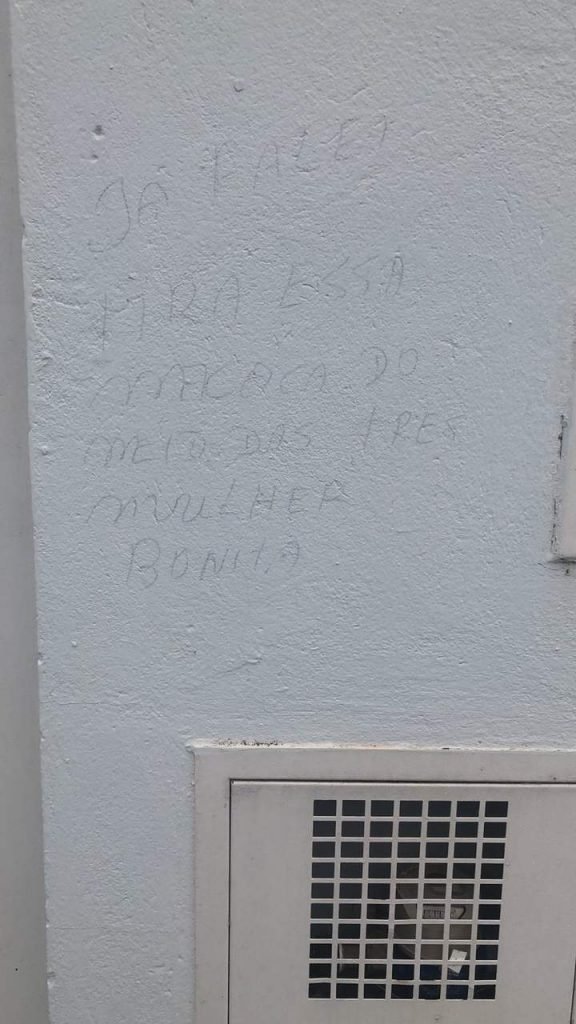 JÁ FALEI
TIRA ESSA
MACACA DO
MEIO DAS TRES
MULHER
BONITA